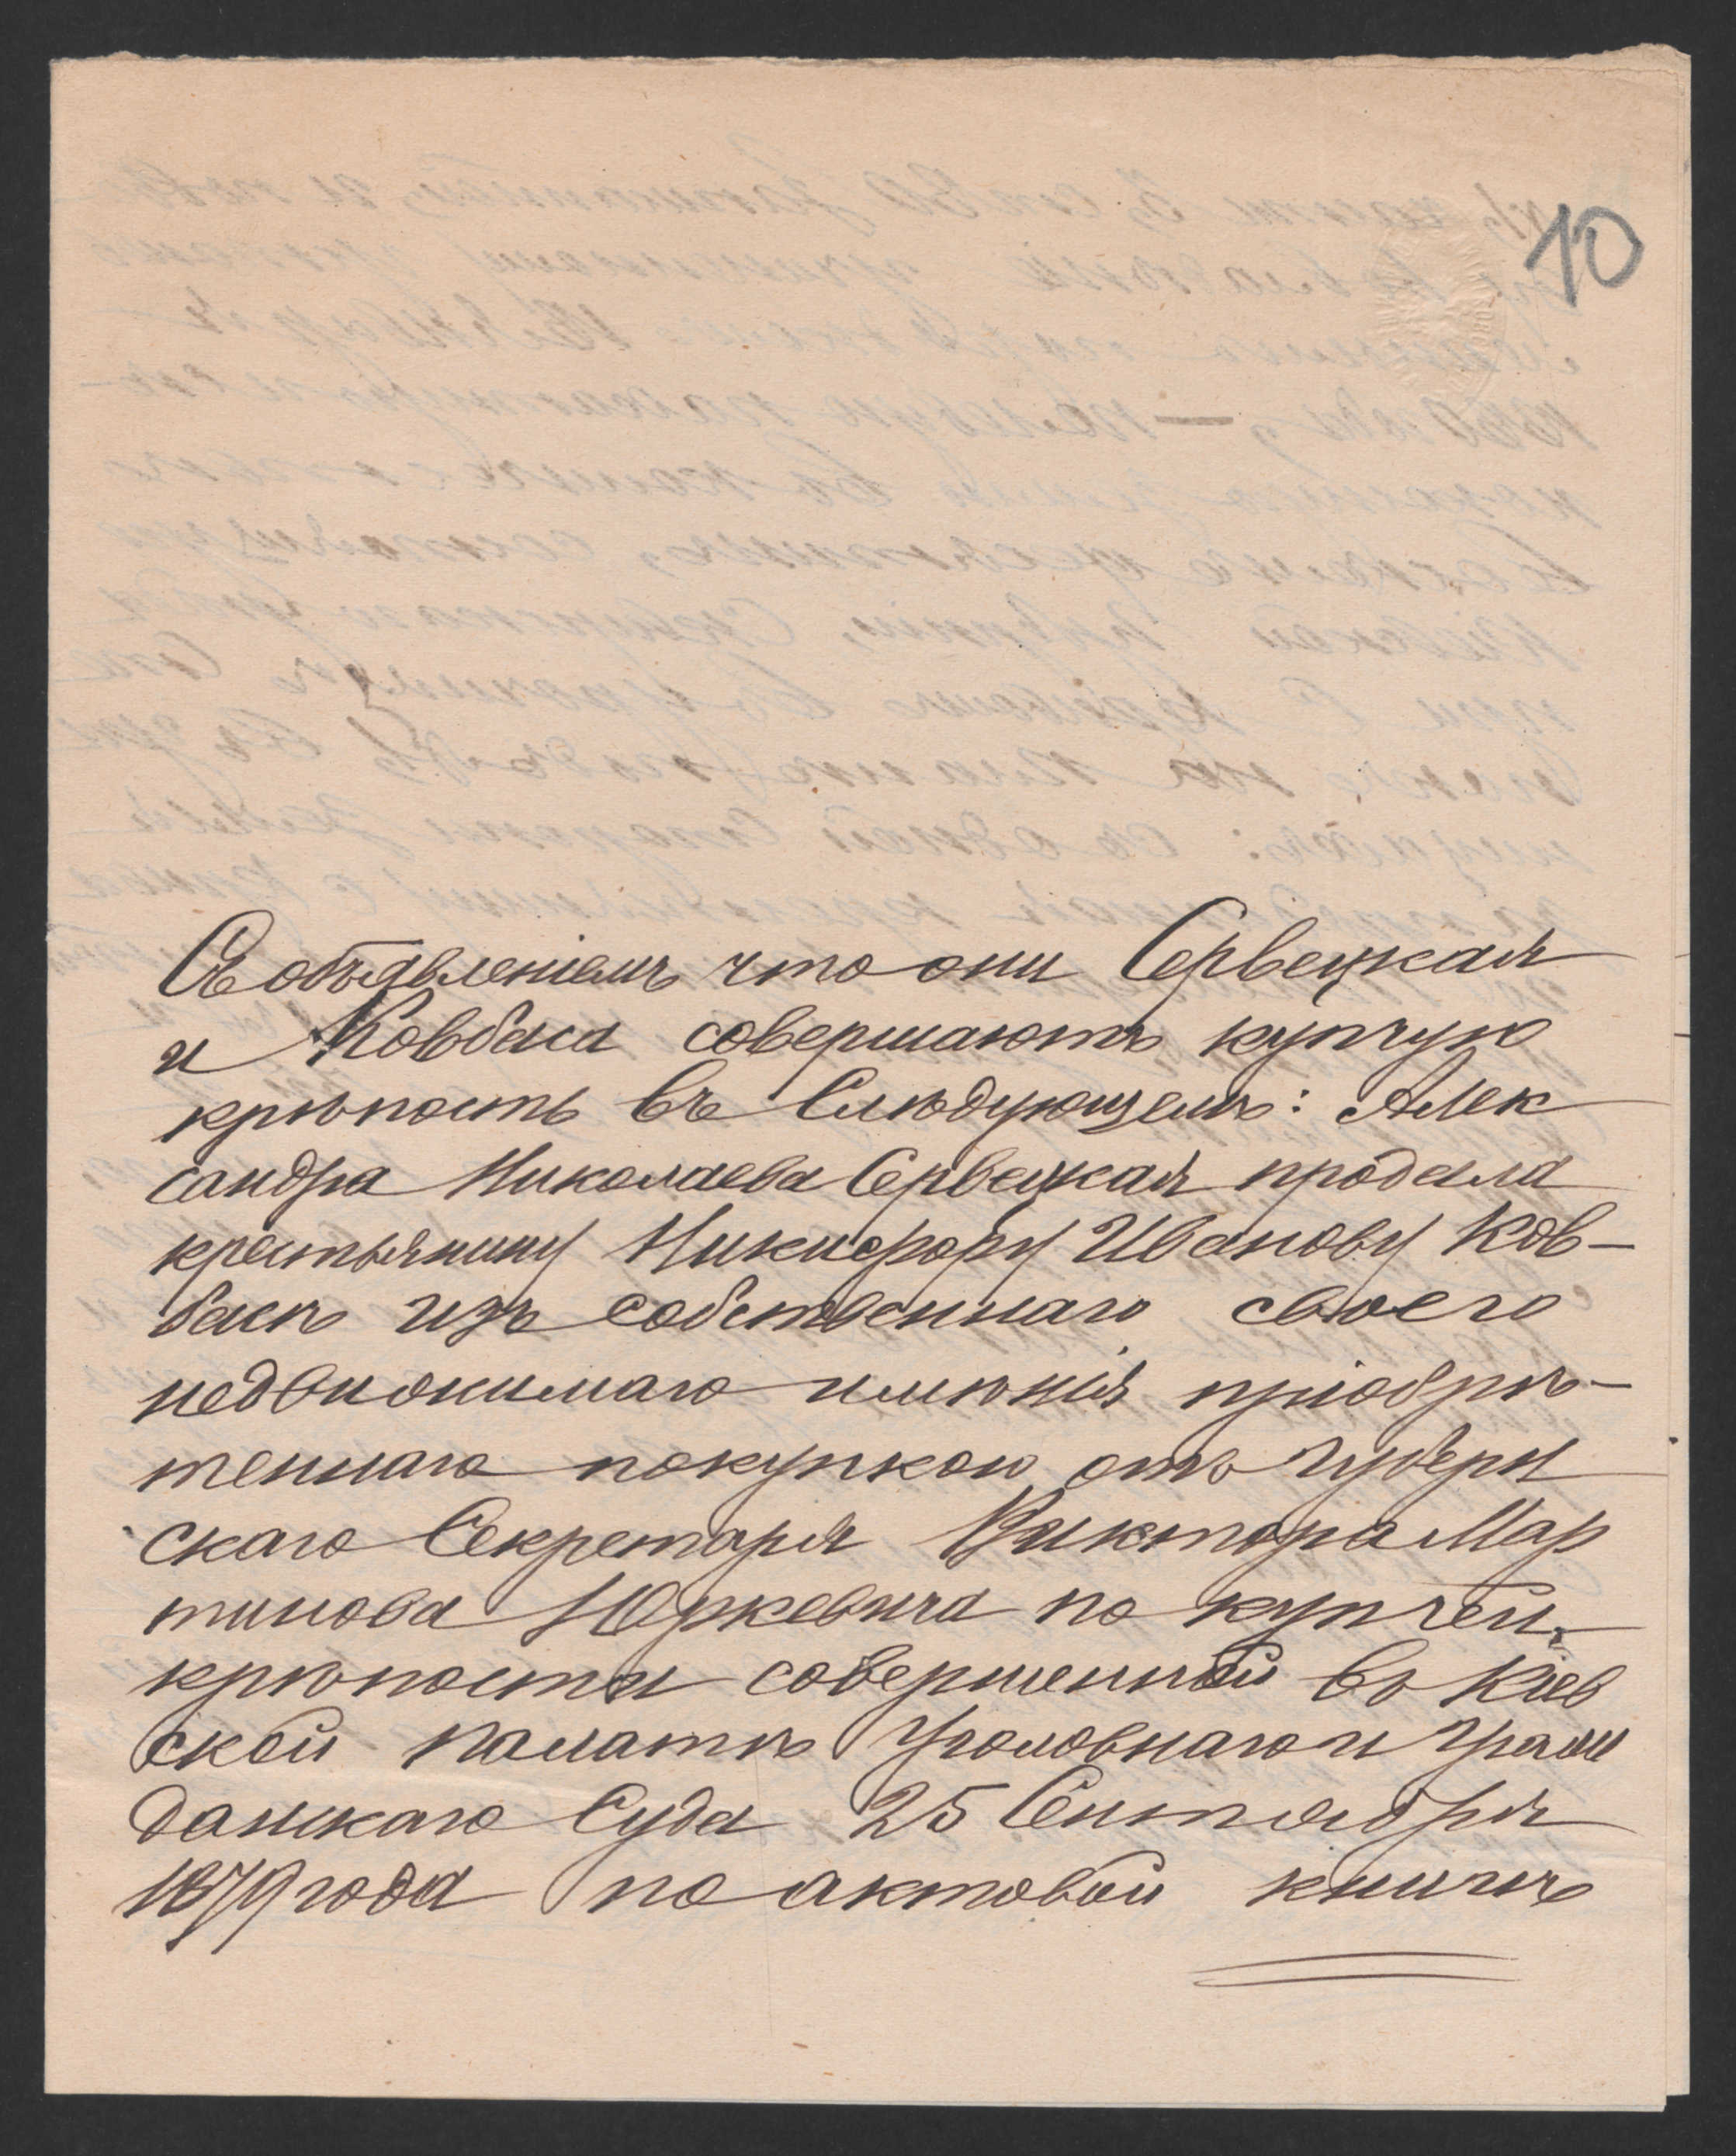 10
Съ объявленіемъ что они Сервецкая
и Ковбаса совершаютъ купчую
крѣпость въ Слѣдующемъ: Алек
сандра Николаева Сервецкая продала
крестьянину Никифору Иванову Ков-
басѣ изъ собственнаго своего
недвижимаго имѣнія пріобрѣ-
теннаго покупкою отъ Губерн
скаго Секретаря Виктора Мар
тинова Юркевича по купчей
крѣпости совершенной въ Кіев
ской Палатѣ Уголовнаго и Граж
данскаго Суда 25 Сентября
1879 года по актовой книгѣ